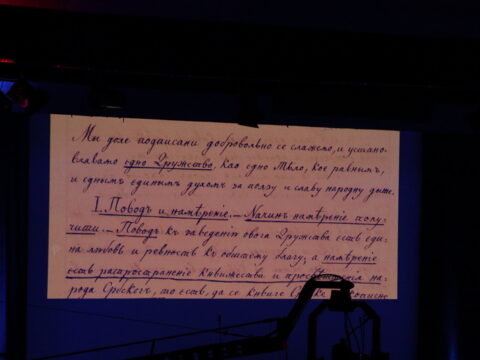 Мы доле подписани добровольно се слажемо, и устано-
влявамо едно Дружество, као едно тѣло, кое равнымъ,
и еднымъ единымъ духомъ за ползу и славу народну дыше.
I. Поводъ и намѣреніе. — Начинъ намѣреніе получи-
ти. — Поводъ къ заведенію овога Дружества есть еди-
на любовь и ревность къ общему благу; а намѣреніе
есть распространеніе книжества и просвѣщенія на-
рода Србскогъ, то есть, да се книге